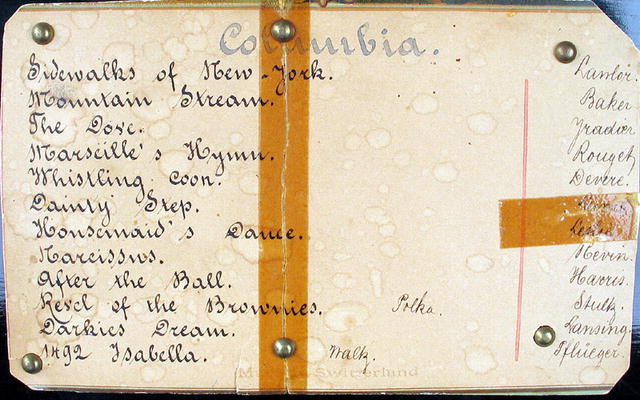 Columbia.
Sidewalks of New-York. Lawlor.
Mountain Stream. Baker
The Dove. Yradier
Marseille's Hymn. Rouget.
Whistling Coon. Devere.
Dainty Step.
Housemaid's Dance.
Narcissus. Nevin.
After the Ball. Harris.
Revel of the Brownies. Polka. Stultz.
Darkies Dream. Lansing.
1492 Isabella. Waltz. Pflueger.
Switzerland